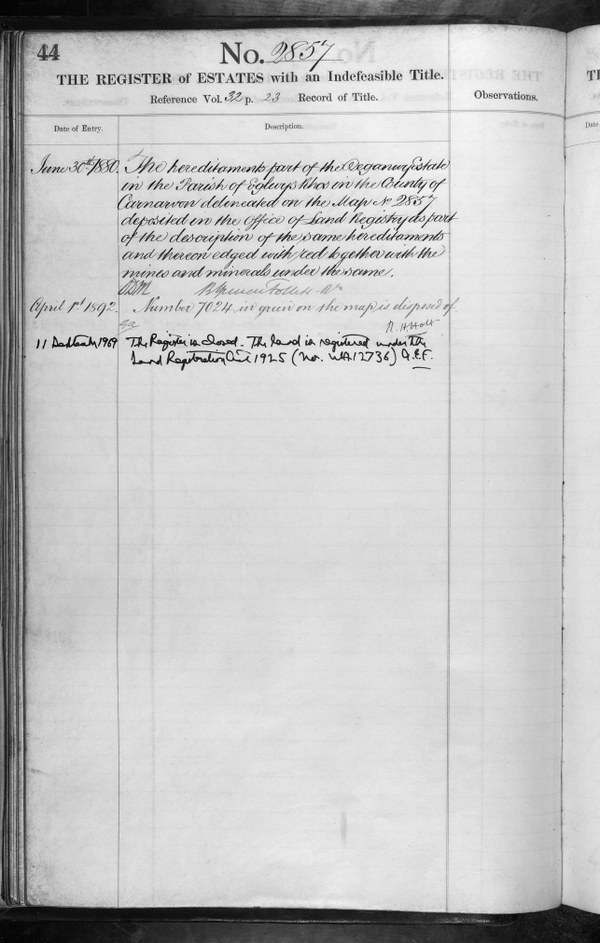 44
No. 2857
THE REGISTER of ESTATES with an Indefeasible Title.
Reference Vol. 32 p. 23 Record of Title.
Observations.
Date of Entry.
Description.
June 30th 1880.
The hereditaments part of the Deganwy Estate
in the Parish of Eglwys Rhos in the County of
Carnarvon delineated on the Map No 2857
deposited in the Office of Land Registry as part
of the description of the same hereditaments
and thereon edged with red together with the
mines and minerals under the same.
April 1st 1892.
Number 7024 in green on the map is disposed of
R. H. Holt
11 September 1969
The Register is closed. The land is registered under the
Land Registration Act 1925 (No. WA12736) A.E.F.